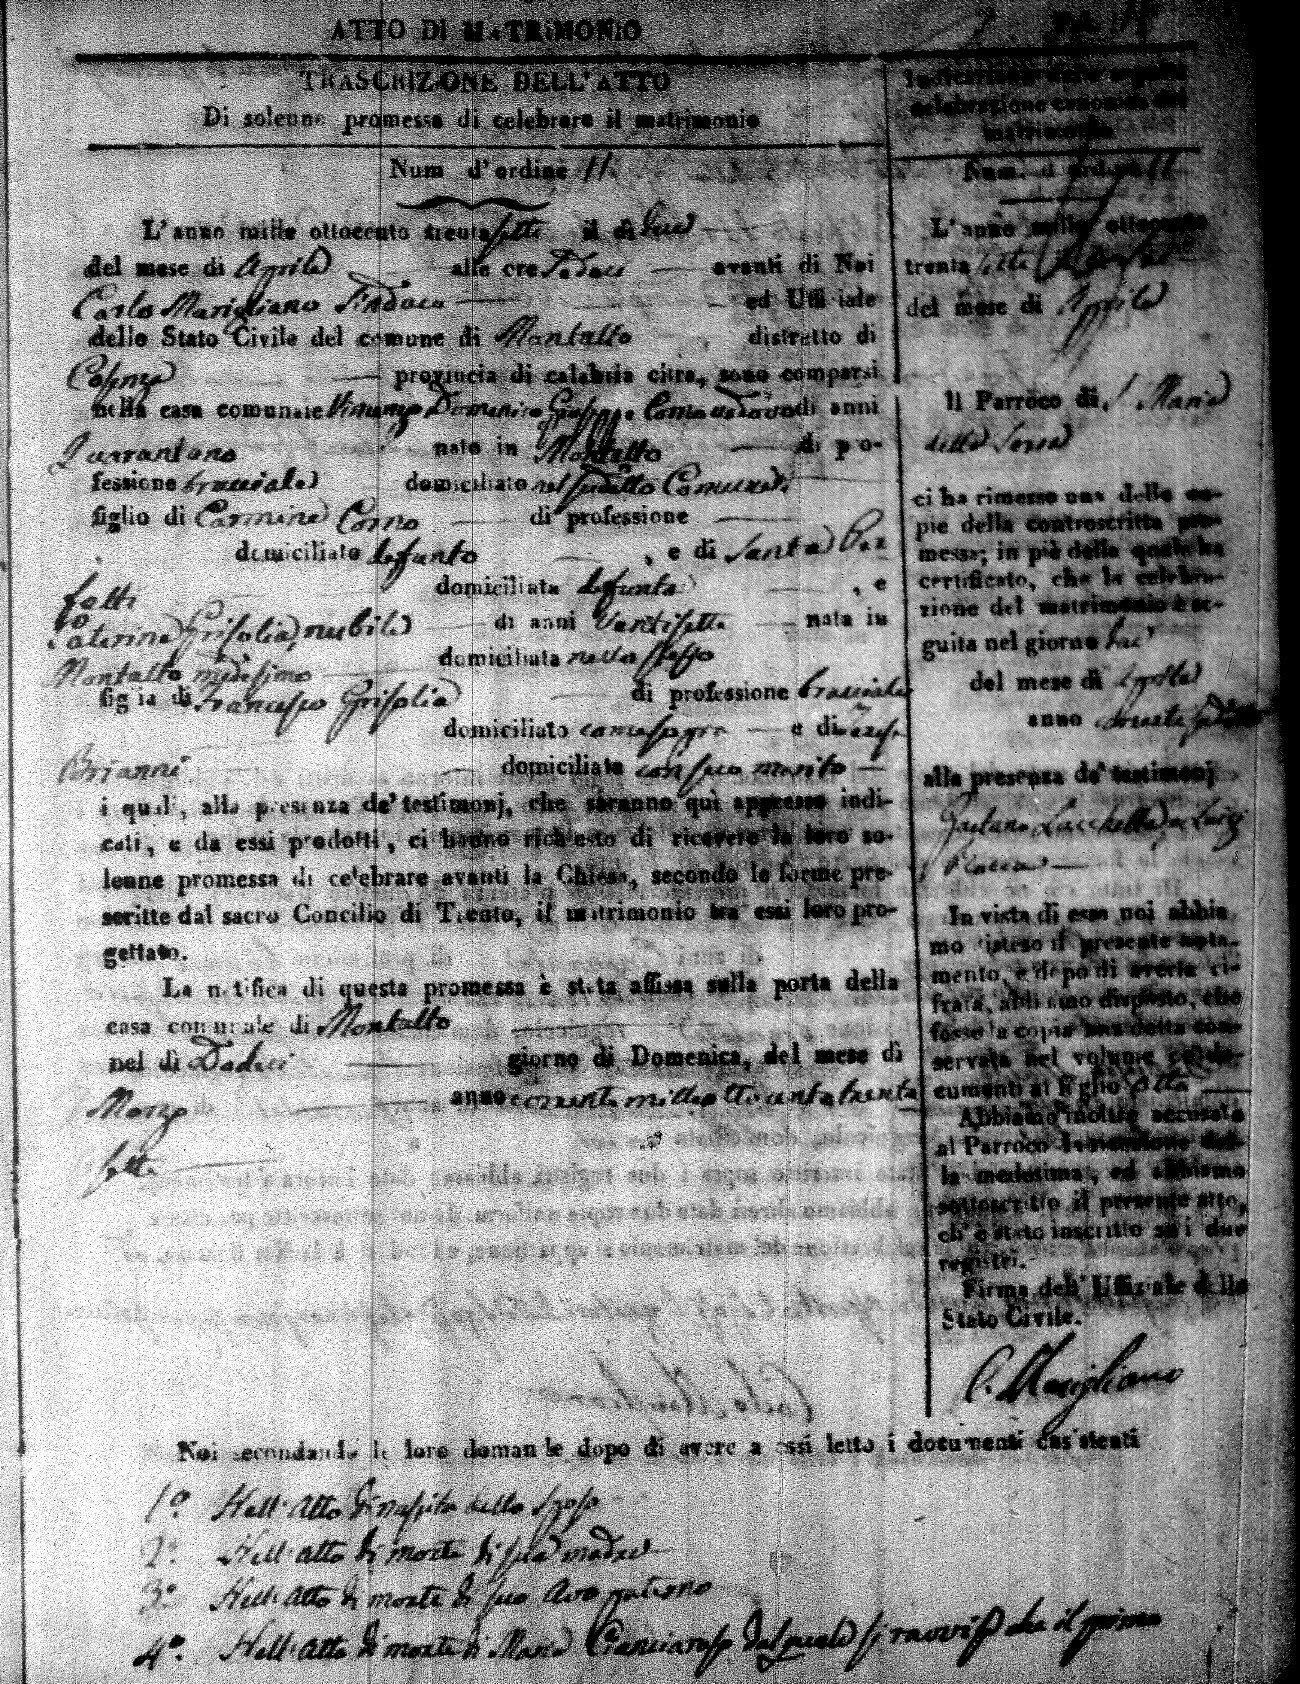 ATTO DI MATRIMONIO
TRASCRIZIONE DELL'ATTO
Di solenne promessa di celebrare il matrimonio
Num d'ordine 11.
L'anno mille ottocento trentasette il dì
del mese di Aprile alle ore avanti di Noi
Carlo Marigliano Sindaco ed Uffiziale
dello Stato Civile del comune di Montalto distretto di
Cosenza provincia di calabria citra, sono comparsi
nella casa comunale Vincenzo Domenico Giuseppe Como vedovo di anni
Quarantuno nato in Montalto di pro-
fessione bracciale domiciliato nel sudetto Comune
figlio di Carmine Como di professione
domiciliato defunto, e di Santa
domiciliata defunta, e
Caterina Grisolia, nubile di anni Ventisette nata in
Montalto medesimo domiciliata nello stesso
figlia di Francesco Grisolia di professione bracciale
domiciliato come sopra e di
Brianni domiciliata con suo marito
i quali, alla presenza de' testimonj, che saranno quì appresso indi-
cati, e da essi prodotti, ci hanno richiesto di ricevere la loro so-
lenne promessa di celebrare avanti la Chiesa, secondo le forme pre-
scritte dal sacro Concilio di Trento, il matrimonio tra essi loro pro-
gettato.
La notifica di questa promessa è stata affissa sulla porta della
casa comunale di Montalto
nel dì Dodeci giorno di Domenica, del mese di
Marzo anno corrente mille ottocento trenta
sette
celebrazione canonica del
matrimonio
Num. d'ordine 11
L'anno mille ottocento
trenta sette
del mese di Aprile
Il Parroco di S. Maria
della Serra
ci ha rimesso una delle co-
pie della controscritta pro-
messa; in piè della quale ha
certificato, che la celebra-
zione del matrimonio è se-
guita nel giorno
del mese di Aprile
anno corrente
alla presenza de' testimonj
Gaetano Lacchetta, e Luigi
In vista di essa noi abbia-
mo disteso il presente nota-
mento, e dopo di averla ci-
frata, abbiamo disposto, che
fosse la copia una detta con-
servata nel volume de' do-
cumenti al foglio otto
Abbiamo inoltre accusato
al Parroco la ricezione del-
la medesima, ed abbiamo
sottoscritto il presente atto,
ch'è stato inscritto su i due
registri.
Firma dell'Uffiziale dello
Stato Civile.
C. Marigliano
Noi secondando le loro domande dopo di avere a essi letto i documenti consistenti
1.º Nell'Atto di nascita dello Sposo
2.º Nell'atto di morte di sua madre
3.º Nell'Atto di morte di suo Avo paterno
4.º Nell'Atto di morte di Maria dal quale si ravvisa che il primo